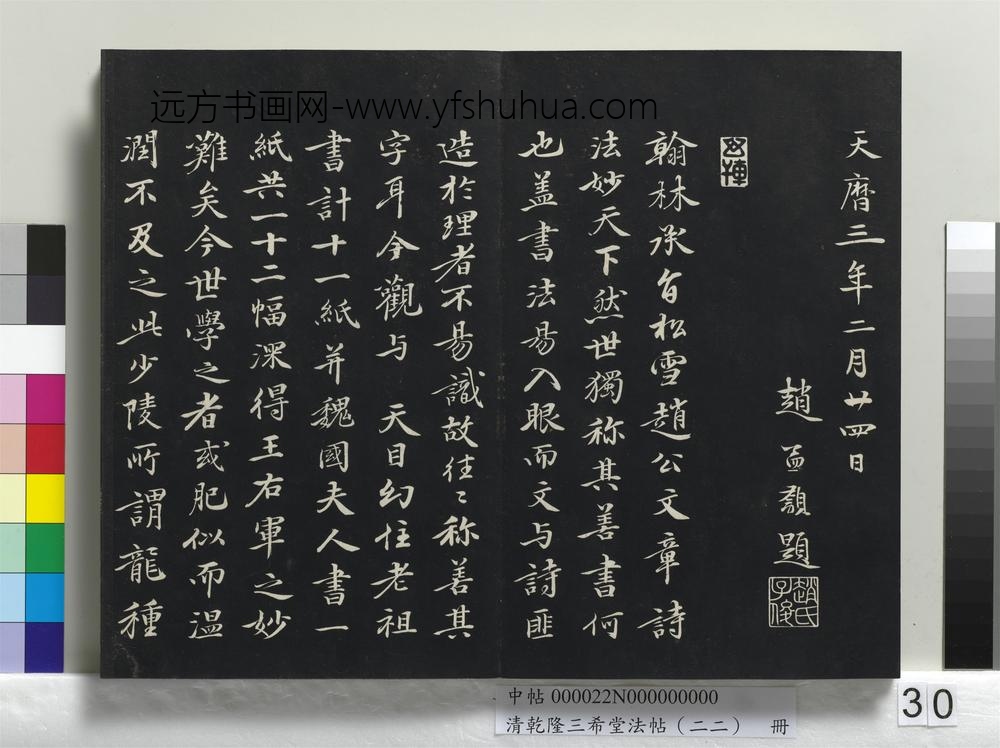 远方书画网-www.yfshuhua.com
天曆三年二月廿四日
趙孟頫題
趙氏子俊
翰林承旨松雪趙公文章詩
法妙天下然世獨称其善書何
也盖書法易入眼而文与詩匪
造於理者不易識故往〻称善其
字耳今觀与 天目幻住老祖
書計十一紙并魏國夫人書一
紙共一十二幅深得王右軍之妙
難矣今世學之者或肥似而温
潤不及之此少陵所謂龍種
中帖 000022N000000000
清乾隆三希堂法帖（二二） 冊
30